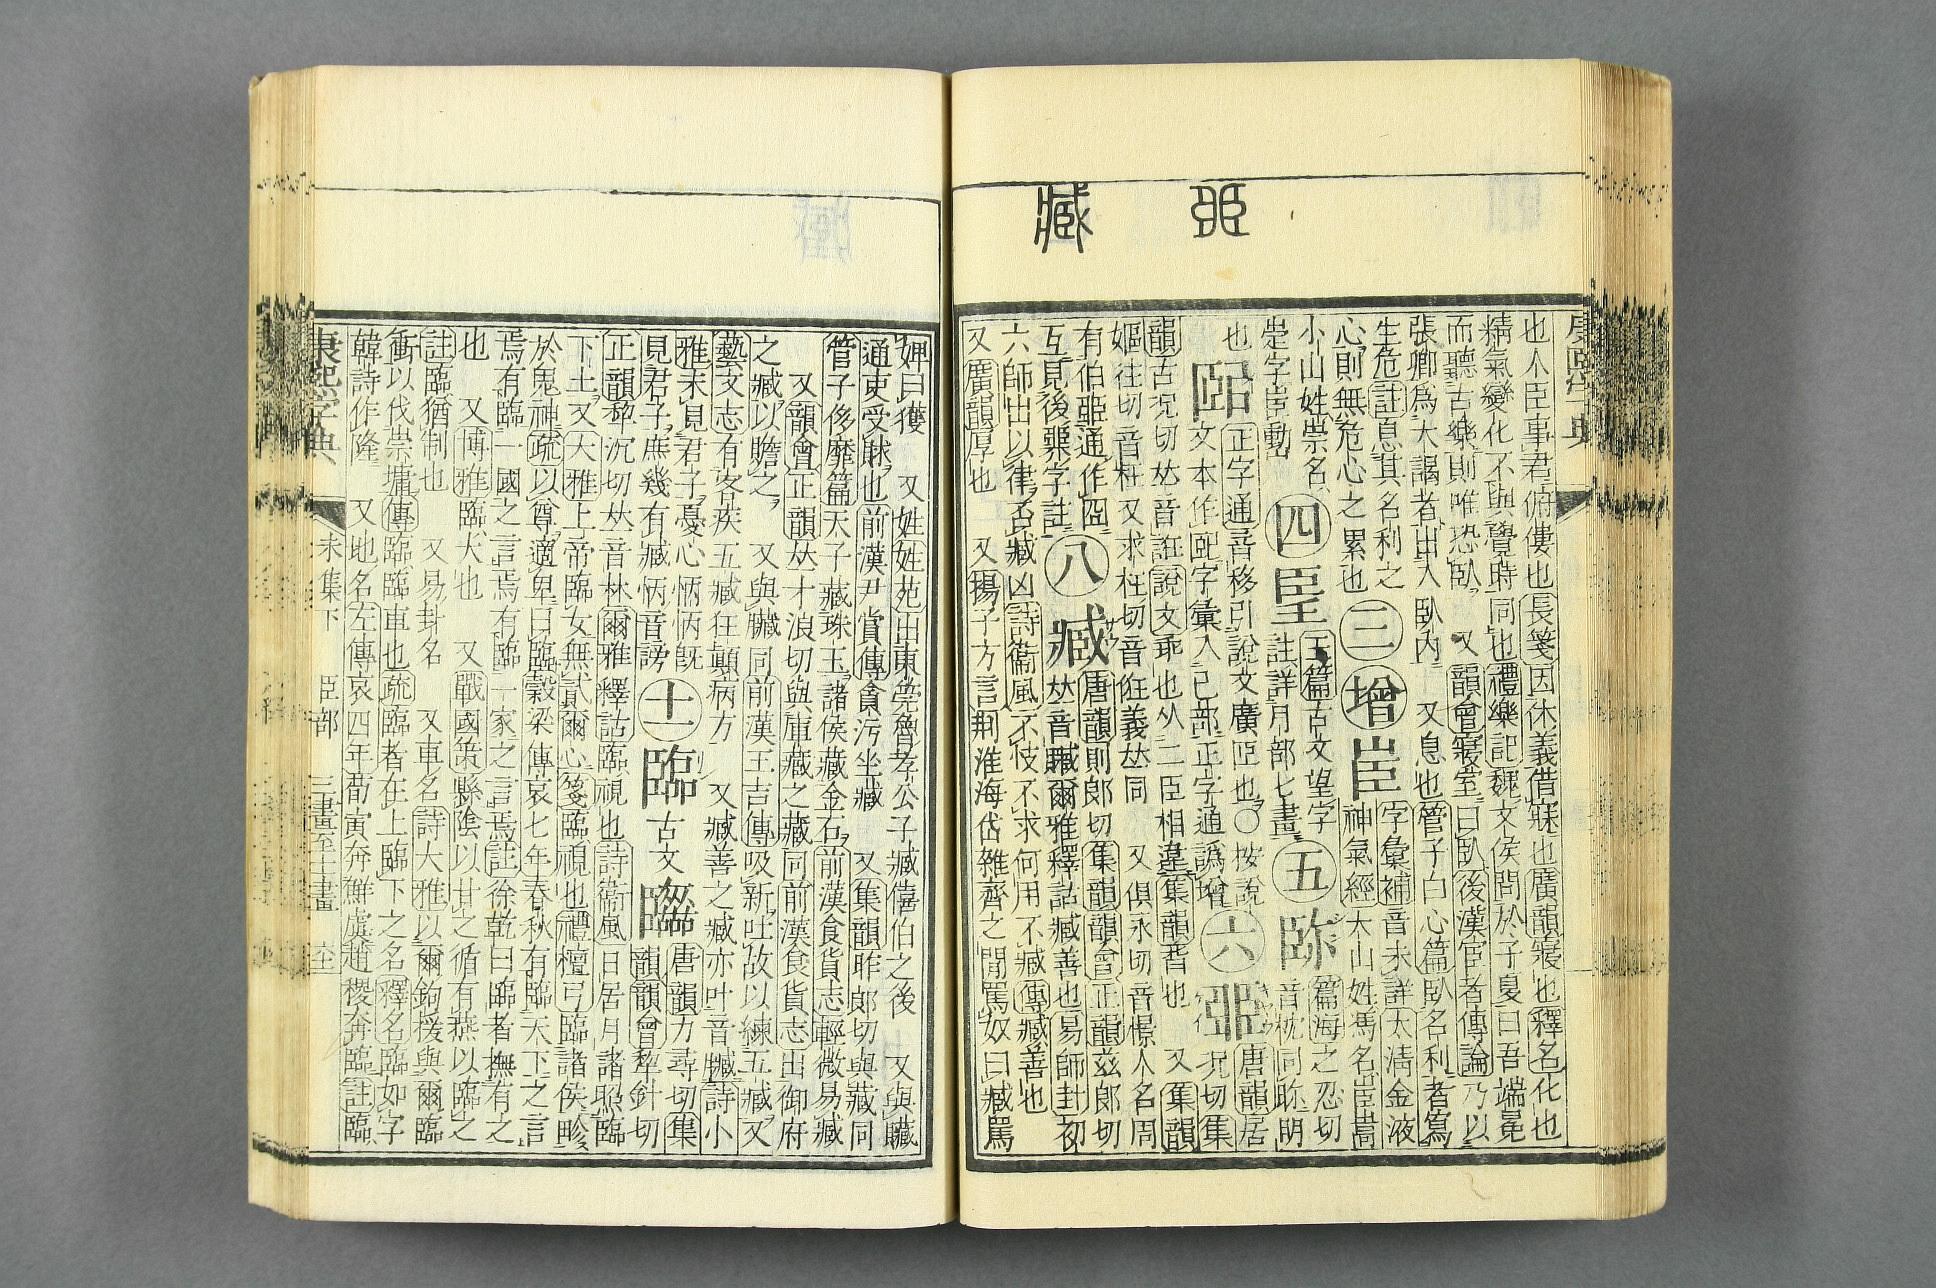 臦
臧
康熙字典
也人臣事君俯僂也長箋因休義借寐也廣韻寢也釋名化也
精氣變化不與覺時同也禮樂記魏文侯問於子夏曰吾端冕
而聽古樂則唯恐臥 又韻會寢室曰臥後漢宦者傳論乃以
張卿爲大謁者出入臥內 又息也管子白心篇臥名利者寫
生危註息其名利之
心則無危心之累也 三 增 𦣞 字彙補音未詳太淸金液
神氣經太山姓馮名𦣞嵩
小山姓崇名
崇字𦣞動 四 𦣠 玉篇古文望字
註詳月部七畫 五 䏔 篇海之忍切
音枕同眕明
也 𦣝 正字通音移引說文廣臣也○按說
文本作𦣝字彙入己部正字通譌增 六 臦 唐韻居
況切集
韻古況切𠀤音誑說文乖也从二臣相違集韻背也 又集韻
嫗往切音枉又求枉切音俇義𠀤同 又俱永切音憬人名周
有伯臦通作囧
互見後㷡字註 八 臧 唐韻則郞切集韻韻會正韻兹郞切
𠀤音贓爾雅釋詁臧善也易師封初
六師出以律否臧凶詩衞風不忮不求何用不臧傳臧善也
又廣韻厚也 又揚子方言荆淮海岱雜齊之閒罵奴曰臧罵
婢曰獲 又姓姓苑出東莞魯孝公子臧僖伯之後 又與贓
通吏受賕也前漢尹賞傳貪污坐臧 又集韻昨郞切與藏同
管子侈靡篇天子藏珠玉諸侯藏金石前漢食貨志輕微易臧
又韻會正韻𠀤才浪切與庫藏之藏同前漢食貨志出御府
之臧以贍之 又與臟同前漢王吉傳吸新吐故以練五臧又
藝文志有客疾五臧狂顚病方 又臧善之臧亦叶音臟詩小
雅未見君子憂心怲怲旣
見君子庶幾有臧怲音謗 十一 臨 古文 𦣷 唐韻力尋切集
韻韻會犂針切
正韻犂沉切𠀤音林爾雅釋詁臨視也詩衞風日居月諸照臨
下土又大雅上帝臨女無貳爾心箋臨視也禮檀弓臨諸侯畛
於鬼神疏以尊適卑曰臨穀梁傳哀七年春秋有臨天下之言
焉有臨一國之言焉有臨一家之言焉註徐乾曰臨者撫有之
也 又博雅臨大也 又戰國策縣陰以甘之循有燕以臨之
註臨猶制也 又易卦名 又車名詩大雅以爾鉤援與爾臨
衝以伐崇墉傳臨臨車也疏臨者在上臨下之名釋名臨如字
韓詩作隆 又地名左傳哀四年荀寅奔鮮虞趙稷奔臨註臨
康熙字典 未集下 臣部 三畫至十一畫